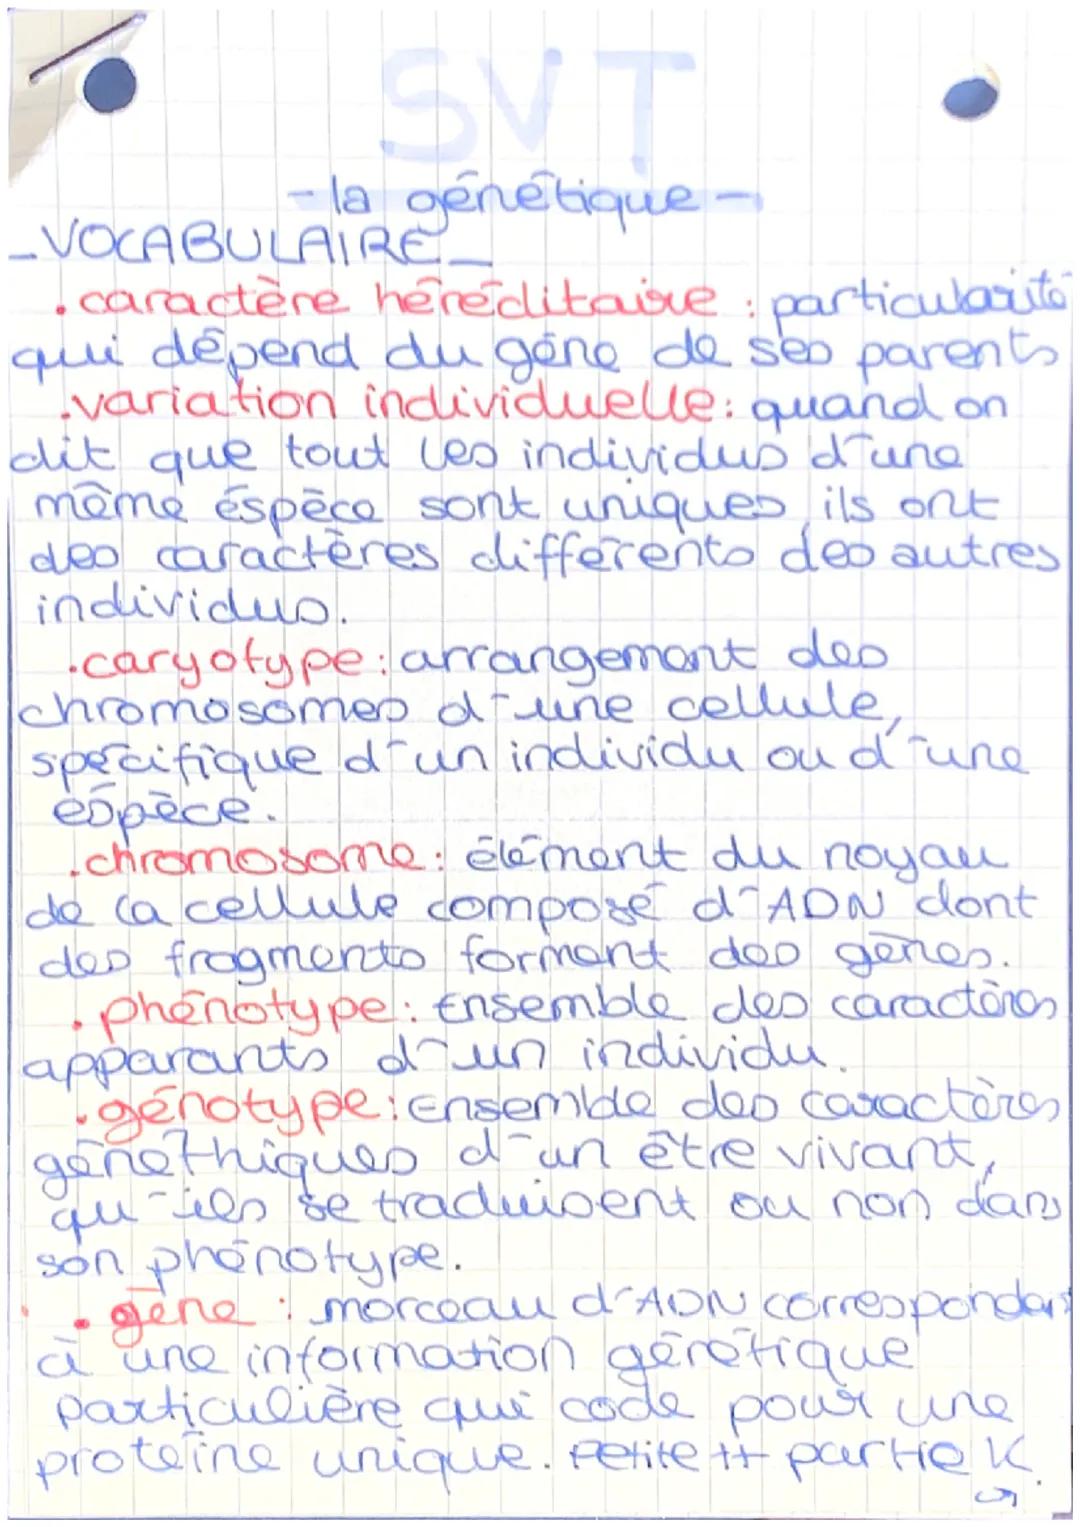 SVT
- la génétique -
_VOCABULAIRE_
. caractère héréditaire : particularité
qui dépend du gène de ses parents
. variation individuelle : quand on
dit que tout les individus d'une
même éspèce sont uniques, ils ont
des caractères différents des autres
individus.
. caryotype : arrangement des
chromosomes d'une cellule,
spécifique d'un individu ou d'une
espèce.
. chromosome : élément du noyau
de la cellule composé d'ADN dont
des fragments forment des gènes.
. phénotype : Ensemble des caractères
apparants d'un individu.
. génotype : Ensemble des caractères
génethiques d'un être vivant,
qu'ils se traduisent ou non dans
son phénotype.
. gène : morceau d'ADN correspondant
à une information génétique
particulière qui code pour une
protéine unique. Petite tt partie K.